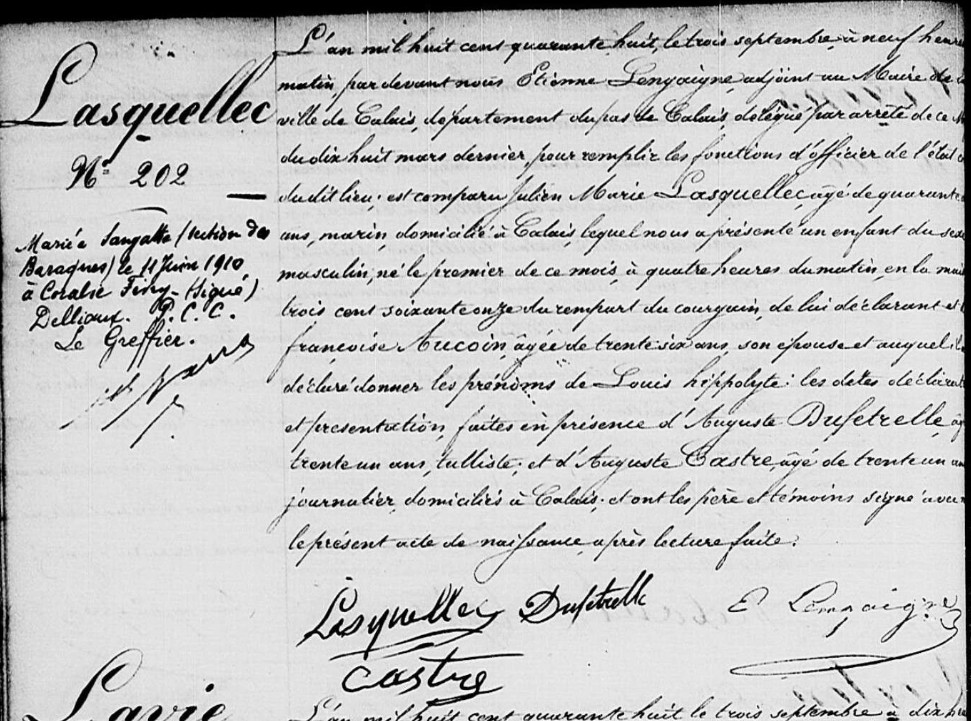 Lasquellec
Nº 202
Marié à Sangatte (section des
Baraques) le 11 Juin 1910
à Coralie Fivry - (Signé)
Delliaux. P. C. C.
Le Greffier.
L'an mil huit cent quarante huit, le trois septembre, à neuf heures
matin, par devant nous Etienne Lengaigne, adjoint au Maire de la
ville de Calais, département du pas de Calais, délégué par arrêté de ce
du dix huit mars dernier pour remplir les fonctions d'officier de l'état
du dit lieu; est comparu Julien Marie Lasquellec, âgé de quarante
ans, marin domicilié à Calais, lequel nous a présenté un enfant du sexe
masculin, né le premier de ce mois à quatre heures du matin, en la
trois cent soixante onze du rempart du courgain, de lui déclarant et
françoise Aucoin, âgée de trente six ans, son épouse et auquel il
déclaré donner les prénoms de Louis hippolyte: les dites
et présentation, faites en présence d'Auguste Dufetrelle,
trente un ans, tulliste, et d'Auguste Castre, âgé de trente un
journalier, domiciliés à Calais; et ont les père et témoins signé avec
le présent acte de naissance, après lecture faite.
Lasquellec Dufetrelle E Lengaigne
Castre
Lavie
L'an mil huit cent quarante huit le trois septembre à dix